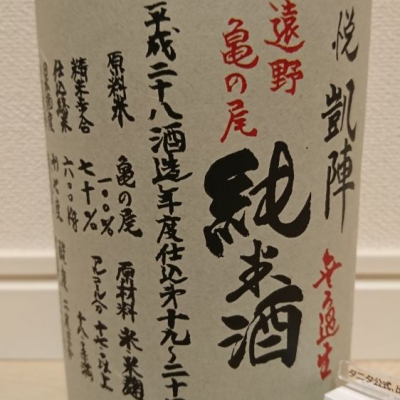 悦 凱陣
遠野
亀の尾
純米酒
無ろ過生
平成二十八酒造年度仕込第十九〜二十
原料米 亀の尾
一〇〇%
原材料 米・米麹
精米歩合 七十%
アルコール分 十七以上
十八未満
タニタ公式